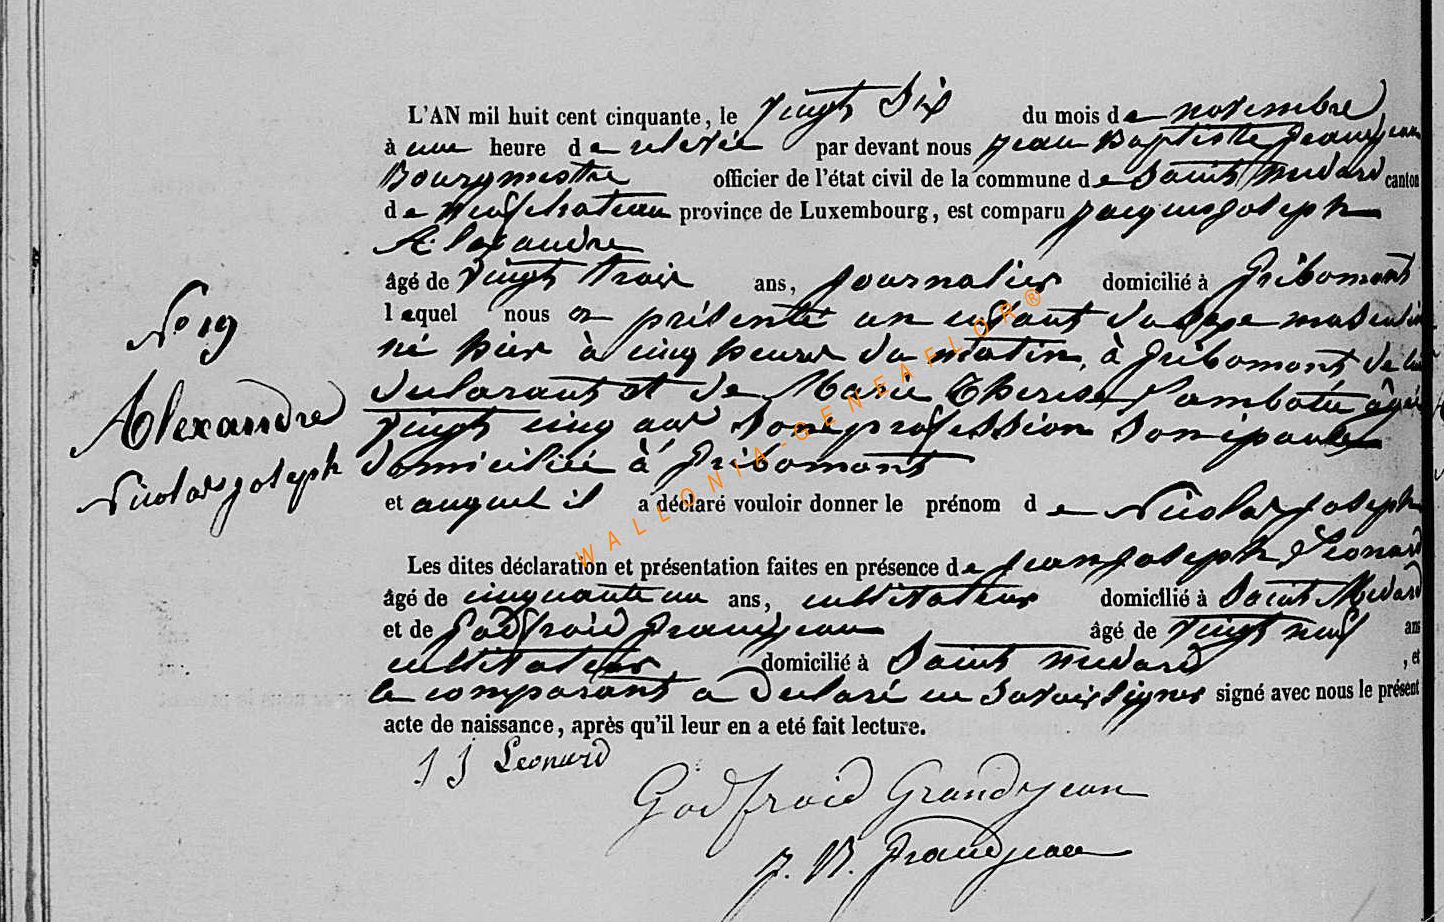 L'AN mil huit cent cinquante, le vingt Six du mois de novembre
à une heure de relevée par devant nous Jean Baptiste Grandjean
Bourgmestre officier de l'état civil de la commune de Saint Medard canton
de Neufchateau province de Luxembourg, est comparu Jacques Joseph
Alexandre
âgé de vingt trois ans, journalier domicilié à Gribomont
lequel nous a présenté un enfant du sexe masculin
né hier à cinq heures du matin, à Gribomont de lui
declarant et de Marie Therese Lambotte âgée
vingt cinq ans Sans profession Son épouse
domiciliée à Gribomont
et auquel il a déclaré vouloir donner le prénom de Nicolas Joseph
N° 19
Alexandre
Nicolas joseph
Les dites déclaration et présentation faites en présence de jean joseph Léonard
âgé de cinquante un ans, cultivateur domicilié à Saint Médard
et de Godfroid Grandjean âgé de vingt neuf ans
cultivateur domicilié à Saint medard , et
le comparant a déclaré ne savoir signer signé avec nous le présent
acte de naissance, après qu'il leur en a eté fait lecture.
J J Leonard
Godfroid Grandjean
J. B. Grandjean
WALLONIA-GENEAFLOR®